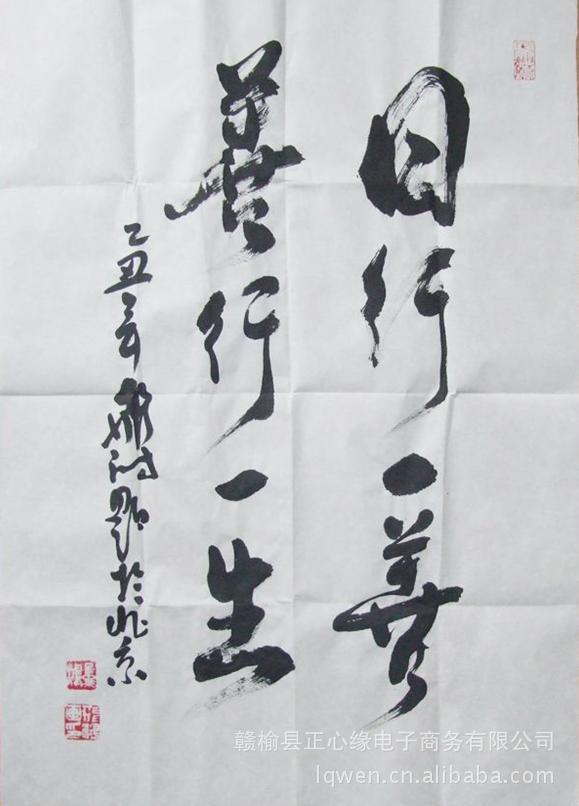 日行一善
善行一生
乙丑年
题於北京
赣榆县正心缘电子商务有限公司
lqwen.cn.alibaba.com